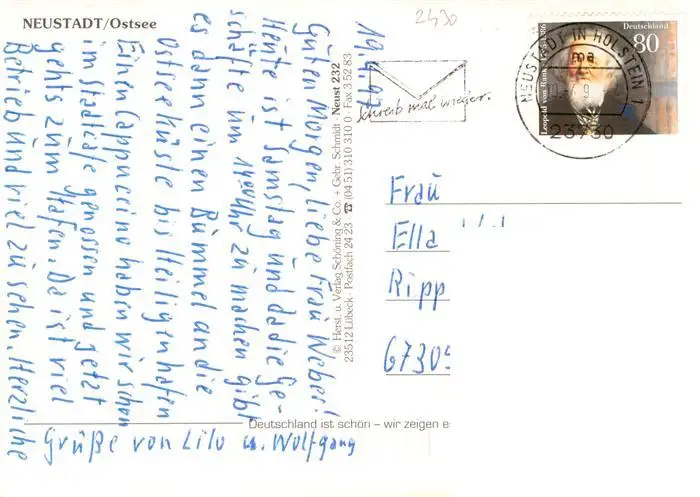 NEUSTADT/Ostsee
2430
19.4.97
Guten Morgen, liebe Frau Weber!
Heute ist Samstag und da die Ge-
schäfte um 14⁰⁰ Uhr zu machen gibt
es dann einen Bummel an die
Ostseeküste bis Heiligenhafen
Einen Cappuccino haben wir schon
im Stadtcafe genossen und jetzt
gehts zum Hafen. Da ist viel
Betrieb und viel zu sehen. Herzliche
Grüße von Lilo u. Wolfgang
© Herst. u. Verlag Schöning & Co. + Gebr. Schmidt · Neust 232
23512 Lübeck · Postfach 24 23 · ☎ (04 51) 310 310 0 · Fax 3 52 83
Deutschland ist schön – wir zeigen es
Schreib mal wieder.
Deutschland
80
Leopold von Ranke
NEUSTADT IN HOLSTEIN 1
ma
23730
Frau
Ella
Ripp
6730